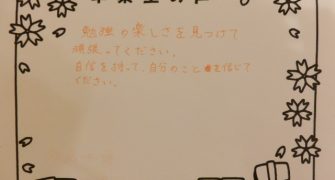 勉強の楽しさを見つけて
頑張ってください。
自信を持って、自分のことを信じて
ください。